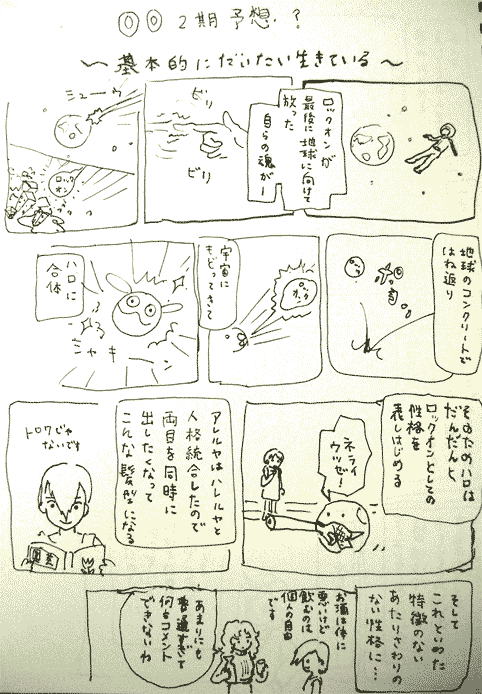 ○○2期予想.?
～基本的にだいたい生きている～
ロックオンが
最後に地球に向けて
放った
自らの魂が…
ビリ
ビリ
ミューウ
ロック
オン
地球のコンクリートで
はね返り
宇宙に
もどってきて
ハロに
合体
シャキーン
そのためハロは
だんだんと
ロックオンとしての
性格を
表しはじめる
ネライ
ウツゼ!
アレルヤはハレルヤと
人格統合したので
両目を同時に
出したくなって
こんな髪型になる
トロワじゃ
ないです
そして
これといった
特徴のない
あたりさわりの
ない性格に…
お酒は体に
悪いけど
飲むのは
個人の自由
です
あまりにも
普通すぎて
何もコメント
できないわ